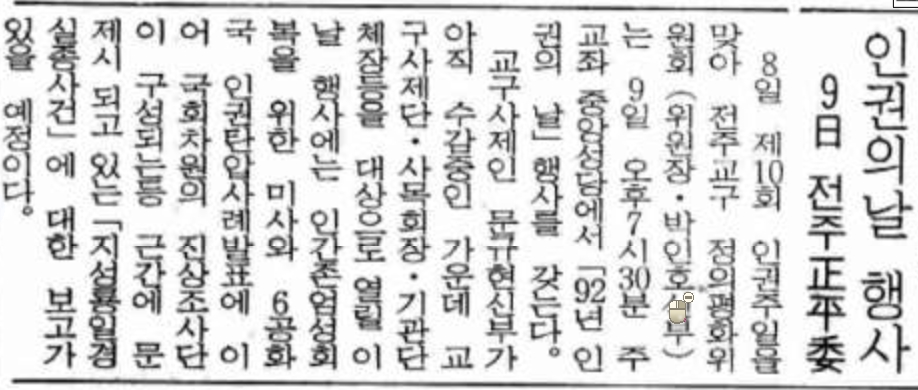 인권의날 행사
9日 전주正平委
8일 제10회 인권주일을
맞아 전주교구 정의평화위
원회(위원장·박인호 부)
는 9일 오후7시30분 주
교좌 중앙성당에서 「92년 인
권의 날」행사를 갖는다.
교구사제인 문규현신부가
아직 수감중인 가운데 교
구사제단·사목회장·기관단
체장등을 대상으로 열릴 이
날 행사에는 인간존엄성회
복을 위한 미사와 6공화
국 인권탄압사례발표에 이
어 국회차원의 진상조사단
이 구성되는등 근간에 문
제시 되고 있는 「지성룡일경
실종사건」에 대한 보고가
있을 예정이다.